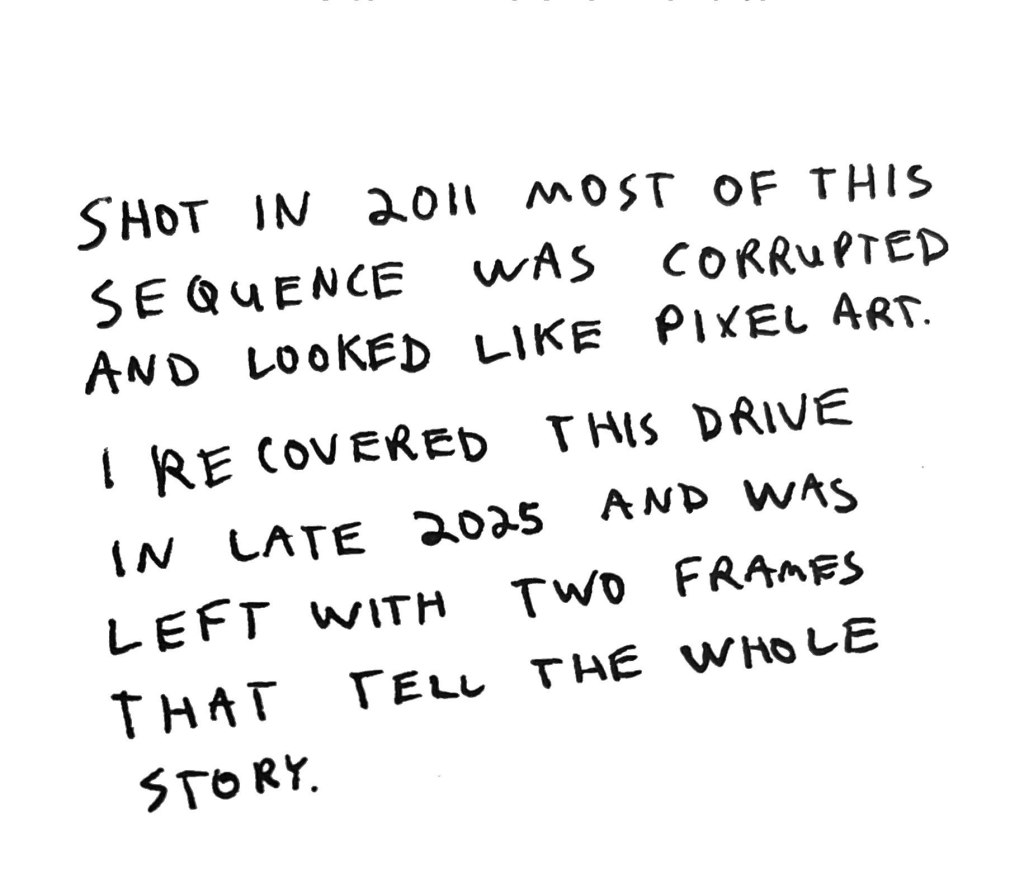 SHOT IN 2011 MOST OF THIS
SEQUENCE WAS CORRUPTED
AND LOOKED LIKE PIXEL ART.
I RECOVERED THIS DRIVE
IN LATE 2025 AND WAS
LEFT WITH TWO FRAMES
THAT TELL THE WHOLE
STORY.